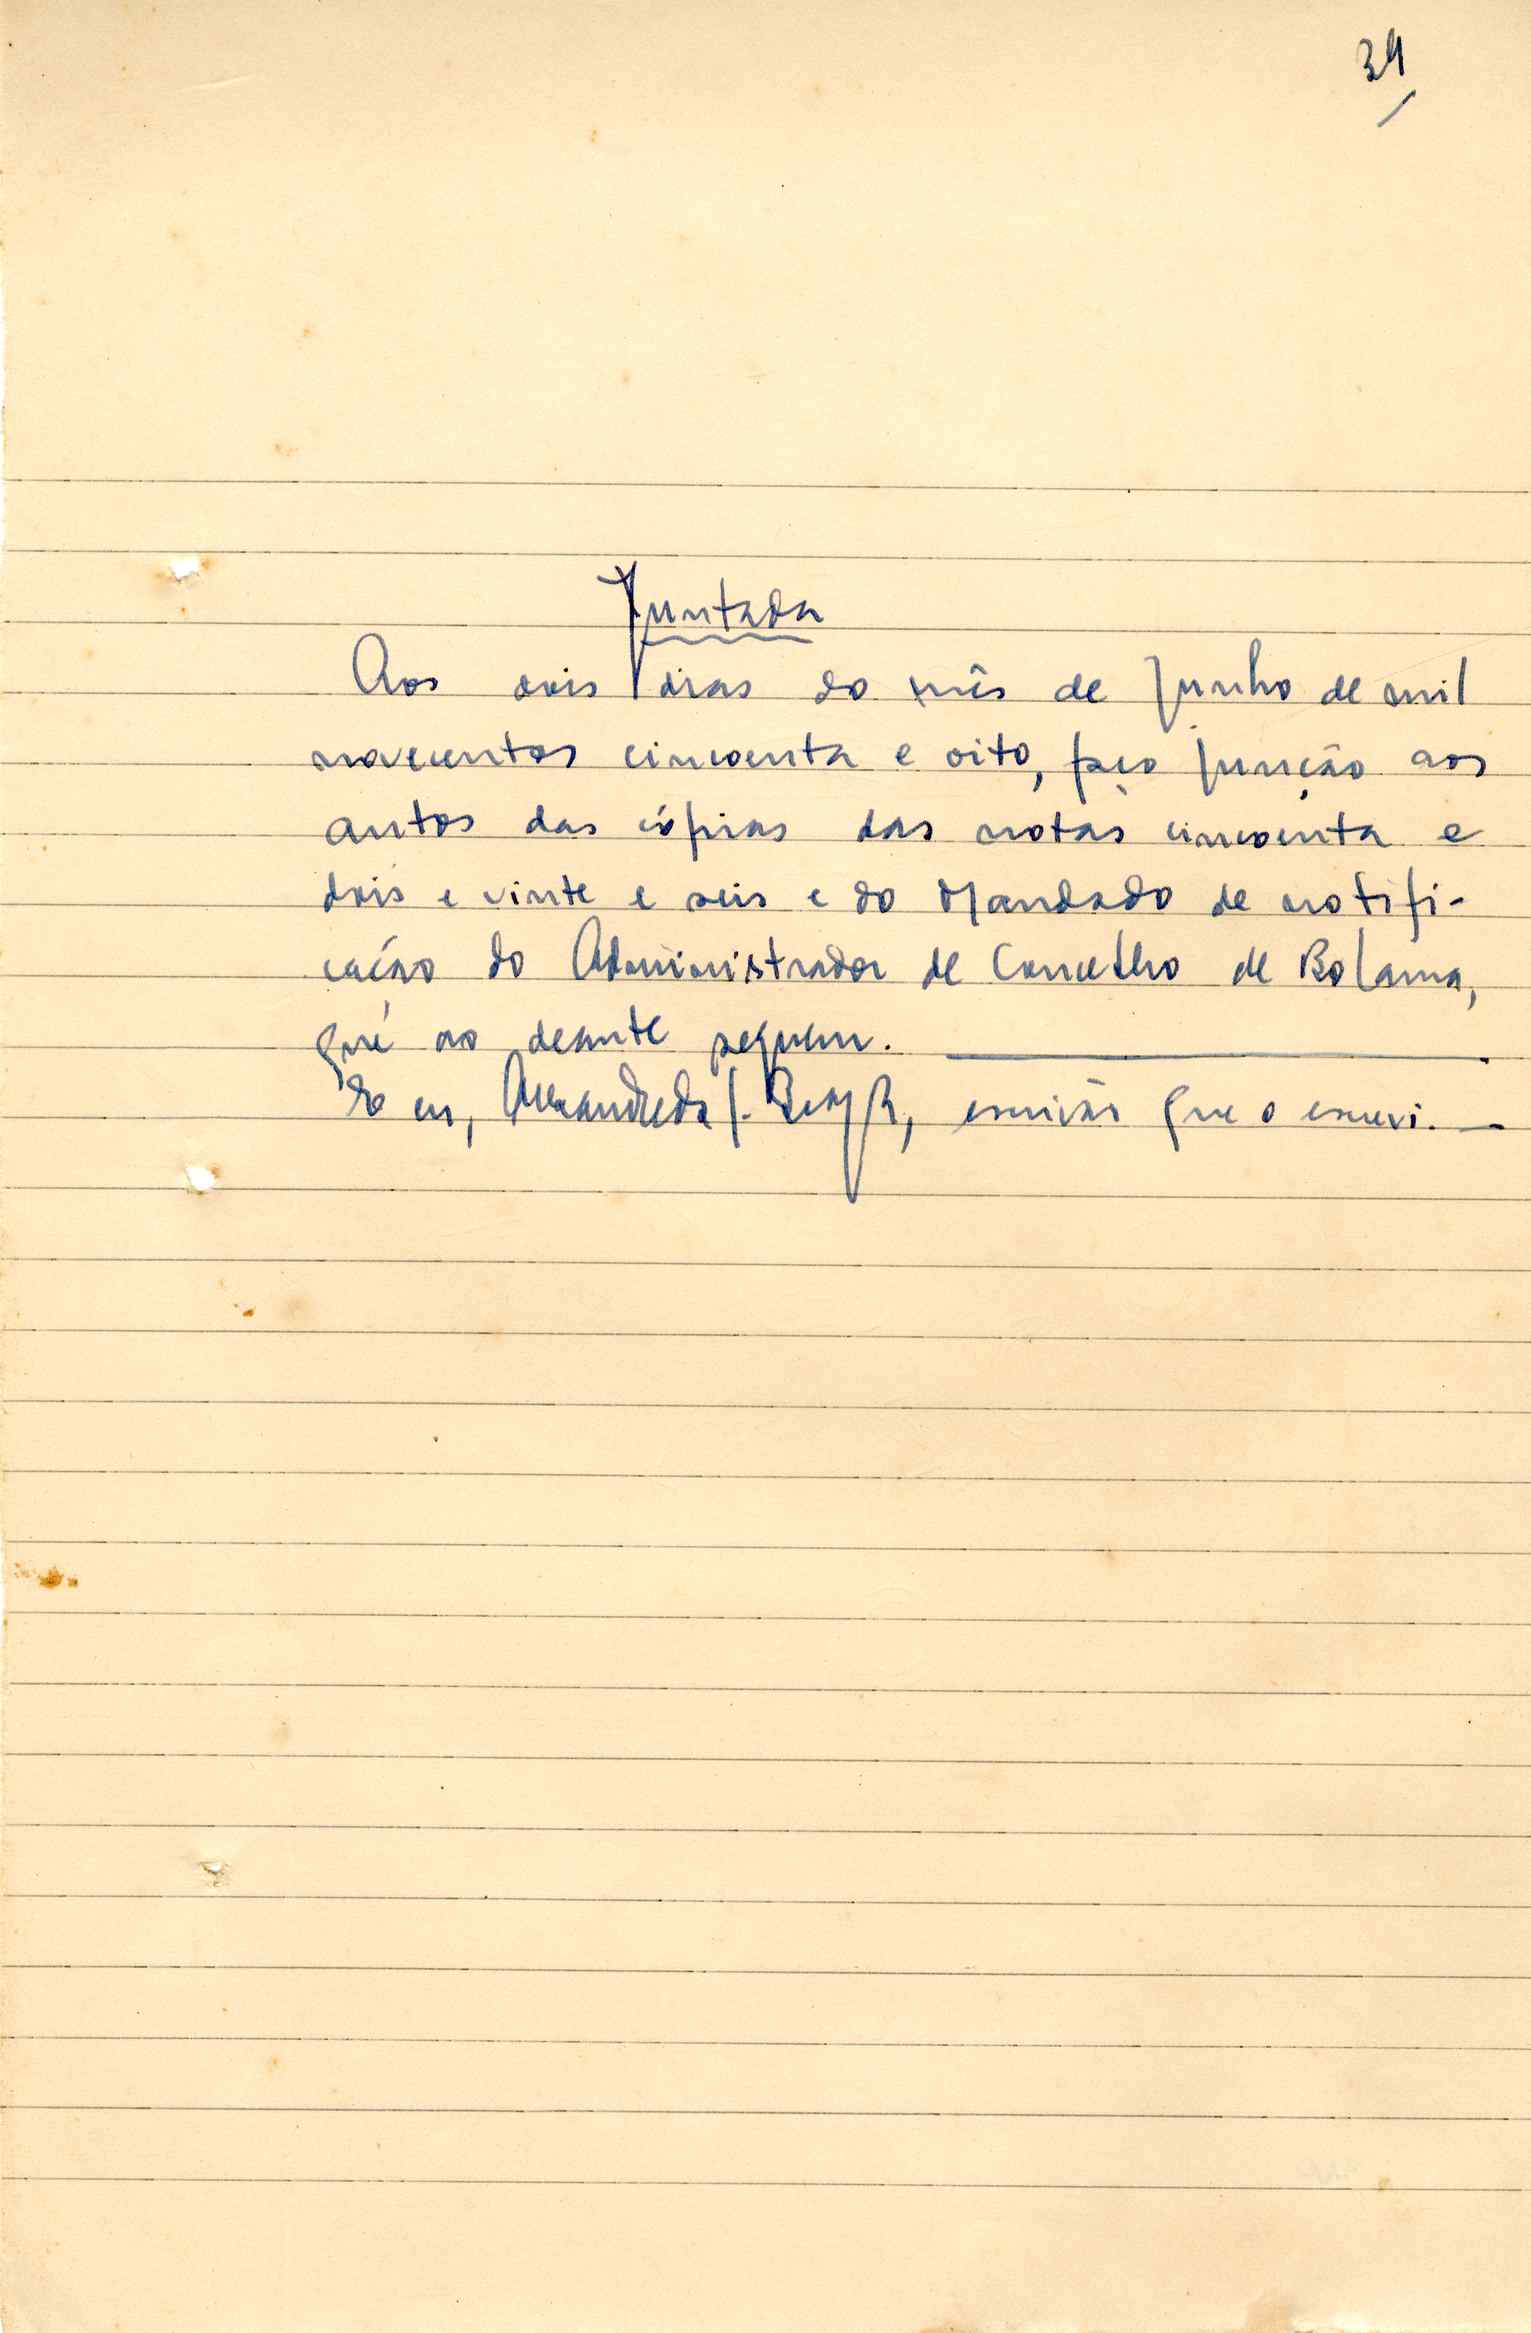 34
Juntada
Aos dois dias do mês de Junho de mil
novecentos cincoenta e oito, faço junção aos
autos das cópias das notas cincoenta e
dois e vinte e seis e do Mandado de notifi-
cação do Administrador de Concelho de Bolama,
que ao deante seguem.
E eu, escrivão que o escrevi. —